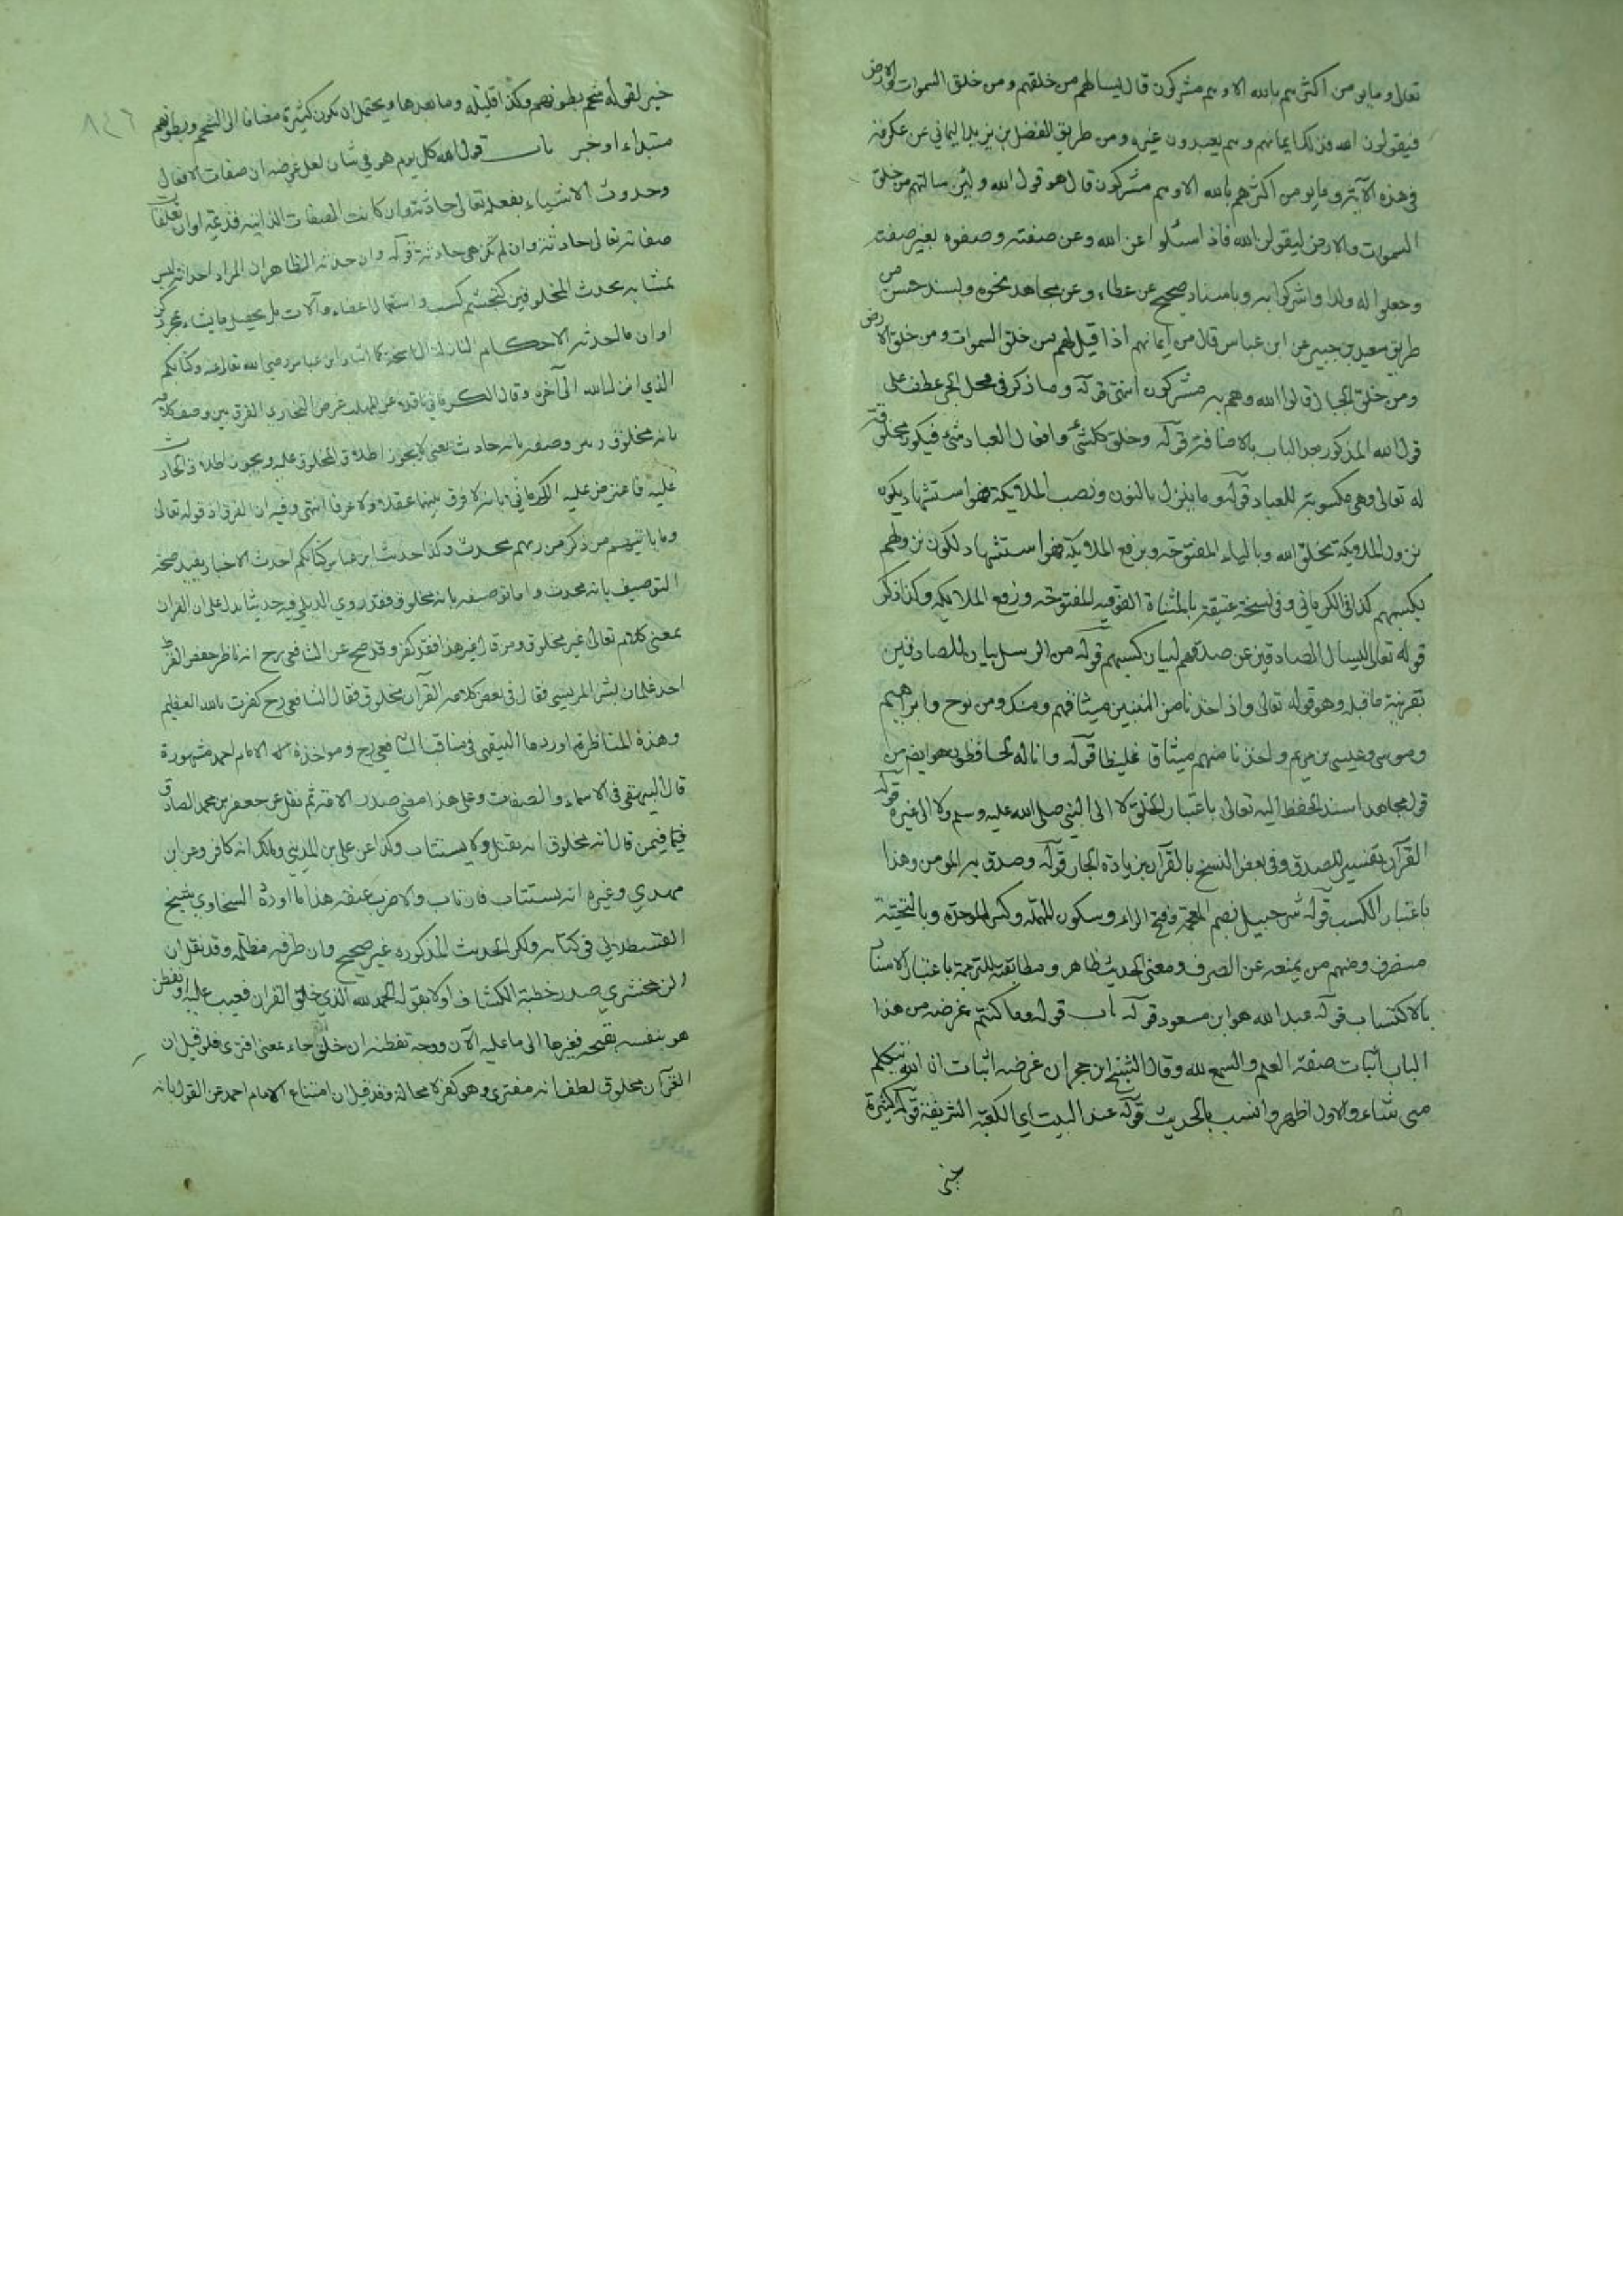 تعالى وما يومن اكثرهم بالله الا وهم مشركون قال ليسالهم من خلقهم ومن خلق السموات والارض
فيقولون الله فذلك ايمانهم وهم يعبدون غيره ومن طريق الفضل بن يزيد اليماني عن عكرمة
في هذه الآية وما يومن اكثرهم بالله الا وهم مشركون قال هو قول الله ولئن سالتهم من خلق
السموات والارض ليقولن الله فاذا اسئلوا عن الله وعن صفته وصفوه بغير صفته
وجعلوا له ولدا واشركوا به وباسناد صحيح عن عطاء وعن مجاهد نحوه وبسند حسن من
طريق سعيد بن جبير عن ابن عباس قال من ايمانهم اذا قيل لهم من خلق السموات ومن خلق الارض
ومن خلق الجبال قالوا الله وهم به مشركون انتهى قوله وما ذكر في محل الجر عطف على
قول الله المذكور بعد الباب بالاضافة قوله وخلق كل شئ وافعال العباد شيء فيكون مخلوقة
له تعالى وهي مكسوبة للعباد قوله وما ينزل بالنون ونصب الملايكة فهو استشهاد يكون
نزول الملايكة بخلق الله وبالياء المفتوحة وبرفع الملايكة فهو استشهاد لكون نزولهم
بكسبهم كذا في الكرماني وفي نسخة عتيقة بالمثناة الفوقيه المفتوحة ورفع الملائكة وكذا ذكر
قوله تعالى ليسال الصادقين عن صدقهم لبيان كسبهم قوله من الرسل بيان للصادقين
بقرينة ما قبله وهو قوله تعالى واذ اخذنا من النبيين ميثاقهم ومنك ومن نوح وابراهيم
وموسى وعيسى بن مريم واخذنا منهم ميثاقا غليظا قوله وانا له لحافظون هو ايضا من
قول مجاهد اسند الحفظ اليه تعالى باعتبار الخلق لا الى النبي صلى الله عليه وسلم ولا الى غيره قوله
القرآن تفسير للصدق وفي بعض النسخ بالقرآن بزيادة الجار قوله وصدق به المومن وهذا
باعتبار الكسب قوله شرحبيل بضم المعجمة وفتح الراء وسكون المهملة وكسر الموحدة وبالتحتية
منصرف ومنهم من يمنعه عن الصرف ومعنى الحديث ظاهر ومطابقته للترجمة باعتبار الاسناد
بالاكتساب قوله عبد الله هو ابن مسعود قوله باب قوله وما كنتم غرضه من هذا
الباب اثبات صفة العلم والسمع لله وقال الشيخ ابن حجر ان غرضه اثبات ان الله يتكلم
متى شاء والاول اظهر وانسب بالحديث قوله عند البيت اي الكعبة الشريفة قوله كثيرة
٨٤٦
خبر لقوله شحم بطونهم وكذا قليلة وما بعدها ويحتمل ان يكون كثيرة مضافا الى الشحم وبطونهم
مبتداء او خبر باب قول الله كل يوم هو في شان لعل غرضه ان صفات الافعال
وحدوث الاشياء بفعله تعالى حادثة وان كانت الصفات الذاتية قديمة او ان تعلقات
صفاته تعالى حادثة وان لم تكن هي حادثة قوله وان حدثه الظاهر ان المراد احداثه ليس
بمشابه بحدث المخلوقين كتجشم كسب واستعمال اعضاء وآلات بل يحصل ما يشاء بمجرد كن
او ان ما احدثه الاحكام النازلة الناسخة كما اشار ابن عباس رضي الله تعالى عنه وكتابكم
الذي انزل الله الى آخره وقال الكرماني ناقلا عن المهلب غرض البخاري الفرق بين وصف كلامه
بانه مخلوق وبين وصفه بانه حادث يعني لا يجوز اطلاق المخلوق عليه ويجوز اطلاق الحادث
عليه فاعترض عليه الكرماني بانه لا فرق بينهما عقلا ولا عرفا انتهى وفيه ان الفرق اذ قوله تعالى
وما ياتيهم من ذكر من ربهم محدث وكذا حديث ابن عباس كتابكم احدث الاخبار يفيد صحة
التوصيف بانه محدث واما توصيفه بانه مخلوق فقد روي الديلي فيه حديثا يدل على ان القران
بمعنى كلامه تعالى غير مخلوق ومن قال غير هذا فقد كفر وقد صح عن الشافعي رح انه ناظر حفص الفرد
احد غلمان بشر المريسي فقال في بعض كلامه القرآن مخلوق فقال الشافعي رح كفرت بالله العظيم
وهذه المناظرة اوردها البيهقي في مناقب الشافعي رح ومواخذة الامام احمد مشهورة
قال البيهقي في الاسماء والصفات وعلى هذا مضى صدر الامة ثم نقل عن جعفر بن محمد الصادق
فيمن قال انه مخلوق انه يقتل ولا يستتاب وكذا عن علي بن المديني ومالك انه كافر وعن ابن
مهدي وغيره انه يستتاب فان تاب والا ضرب عنقه هذا ما اورده السخاوي شيخ
القسطلاني في كتابه ولكن الحديث المذكوره غير صحيح وان طرقه مظلمة وقد نقل ان
الزمخشري صدر خطبة الكشاف اولا بقوله الحمد لله الذي خلق القران فعيب عليه او تفطن
هو بنفسه بقبحه فغيرها الى ما عليه الآن ووجه تفطنه ان خلق جاء بمعنى افترى فلو قيل ان
القرآن مخلوق لطف انه مفترى وهو كفر لا محالة وقد قيل ان امتناع الامام احمد عن القول بانه